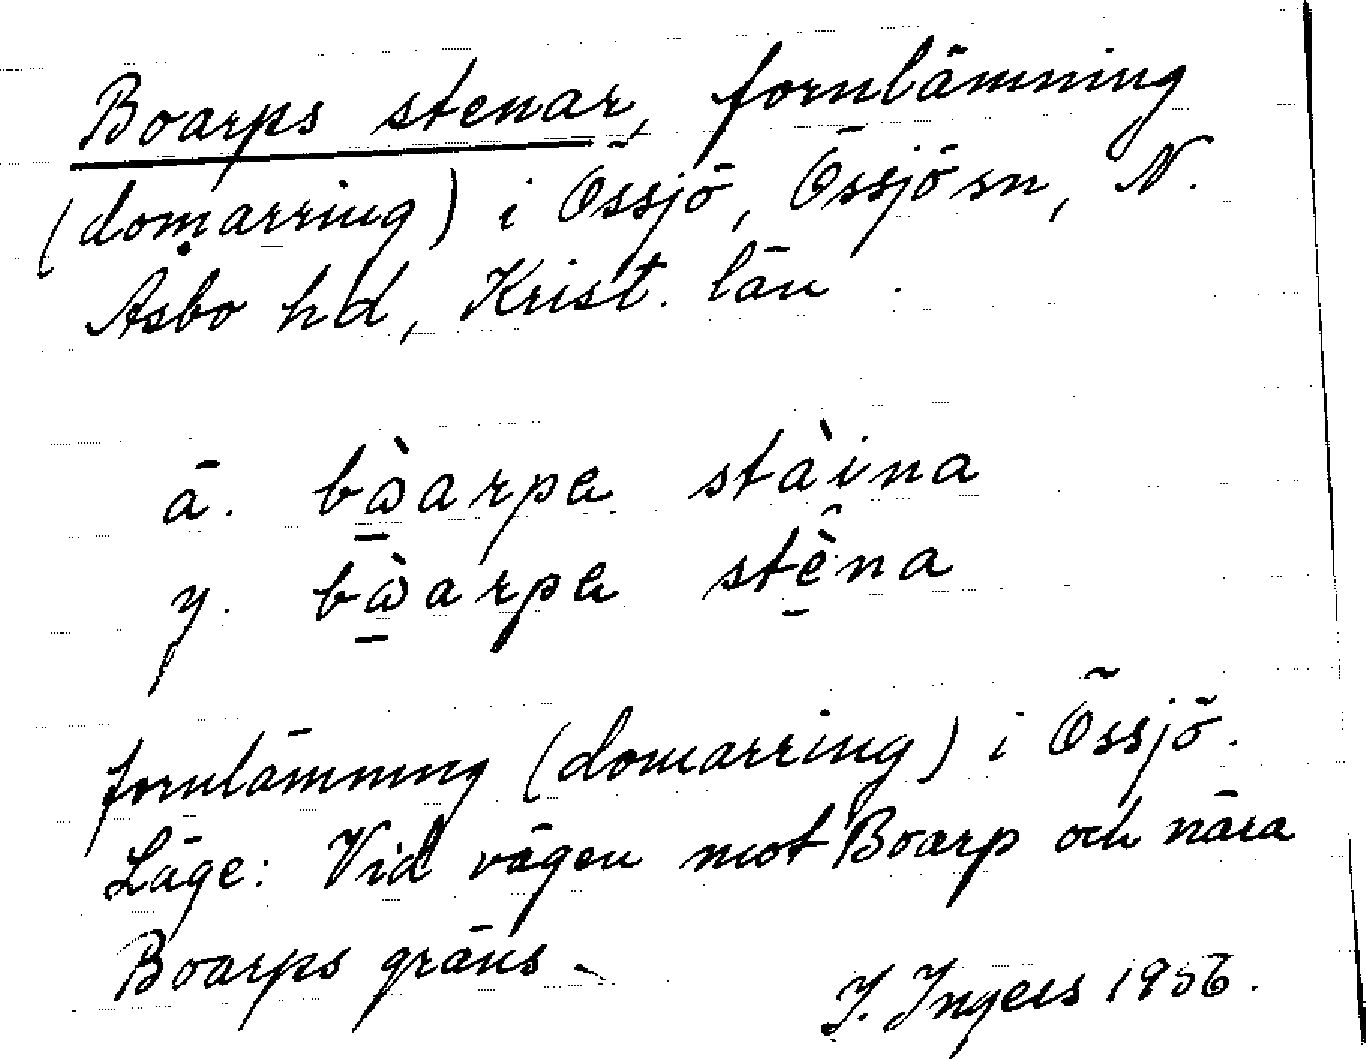 Boarps stenar, fornlämning
(domarring) i Össjö, Össjö sn, N.
Åsbo hd, Krist. län.
ä. bɷ̀arpa stàina
y. bɷ̀arpa stèna
fornlämning (domarring) i Össjö.
Läge: Vid vägen mot Boarp och nära
Boarps gräns.
I. Ingers 1956.